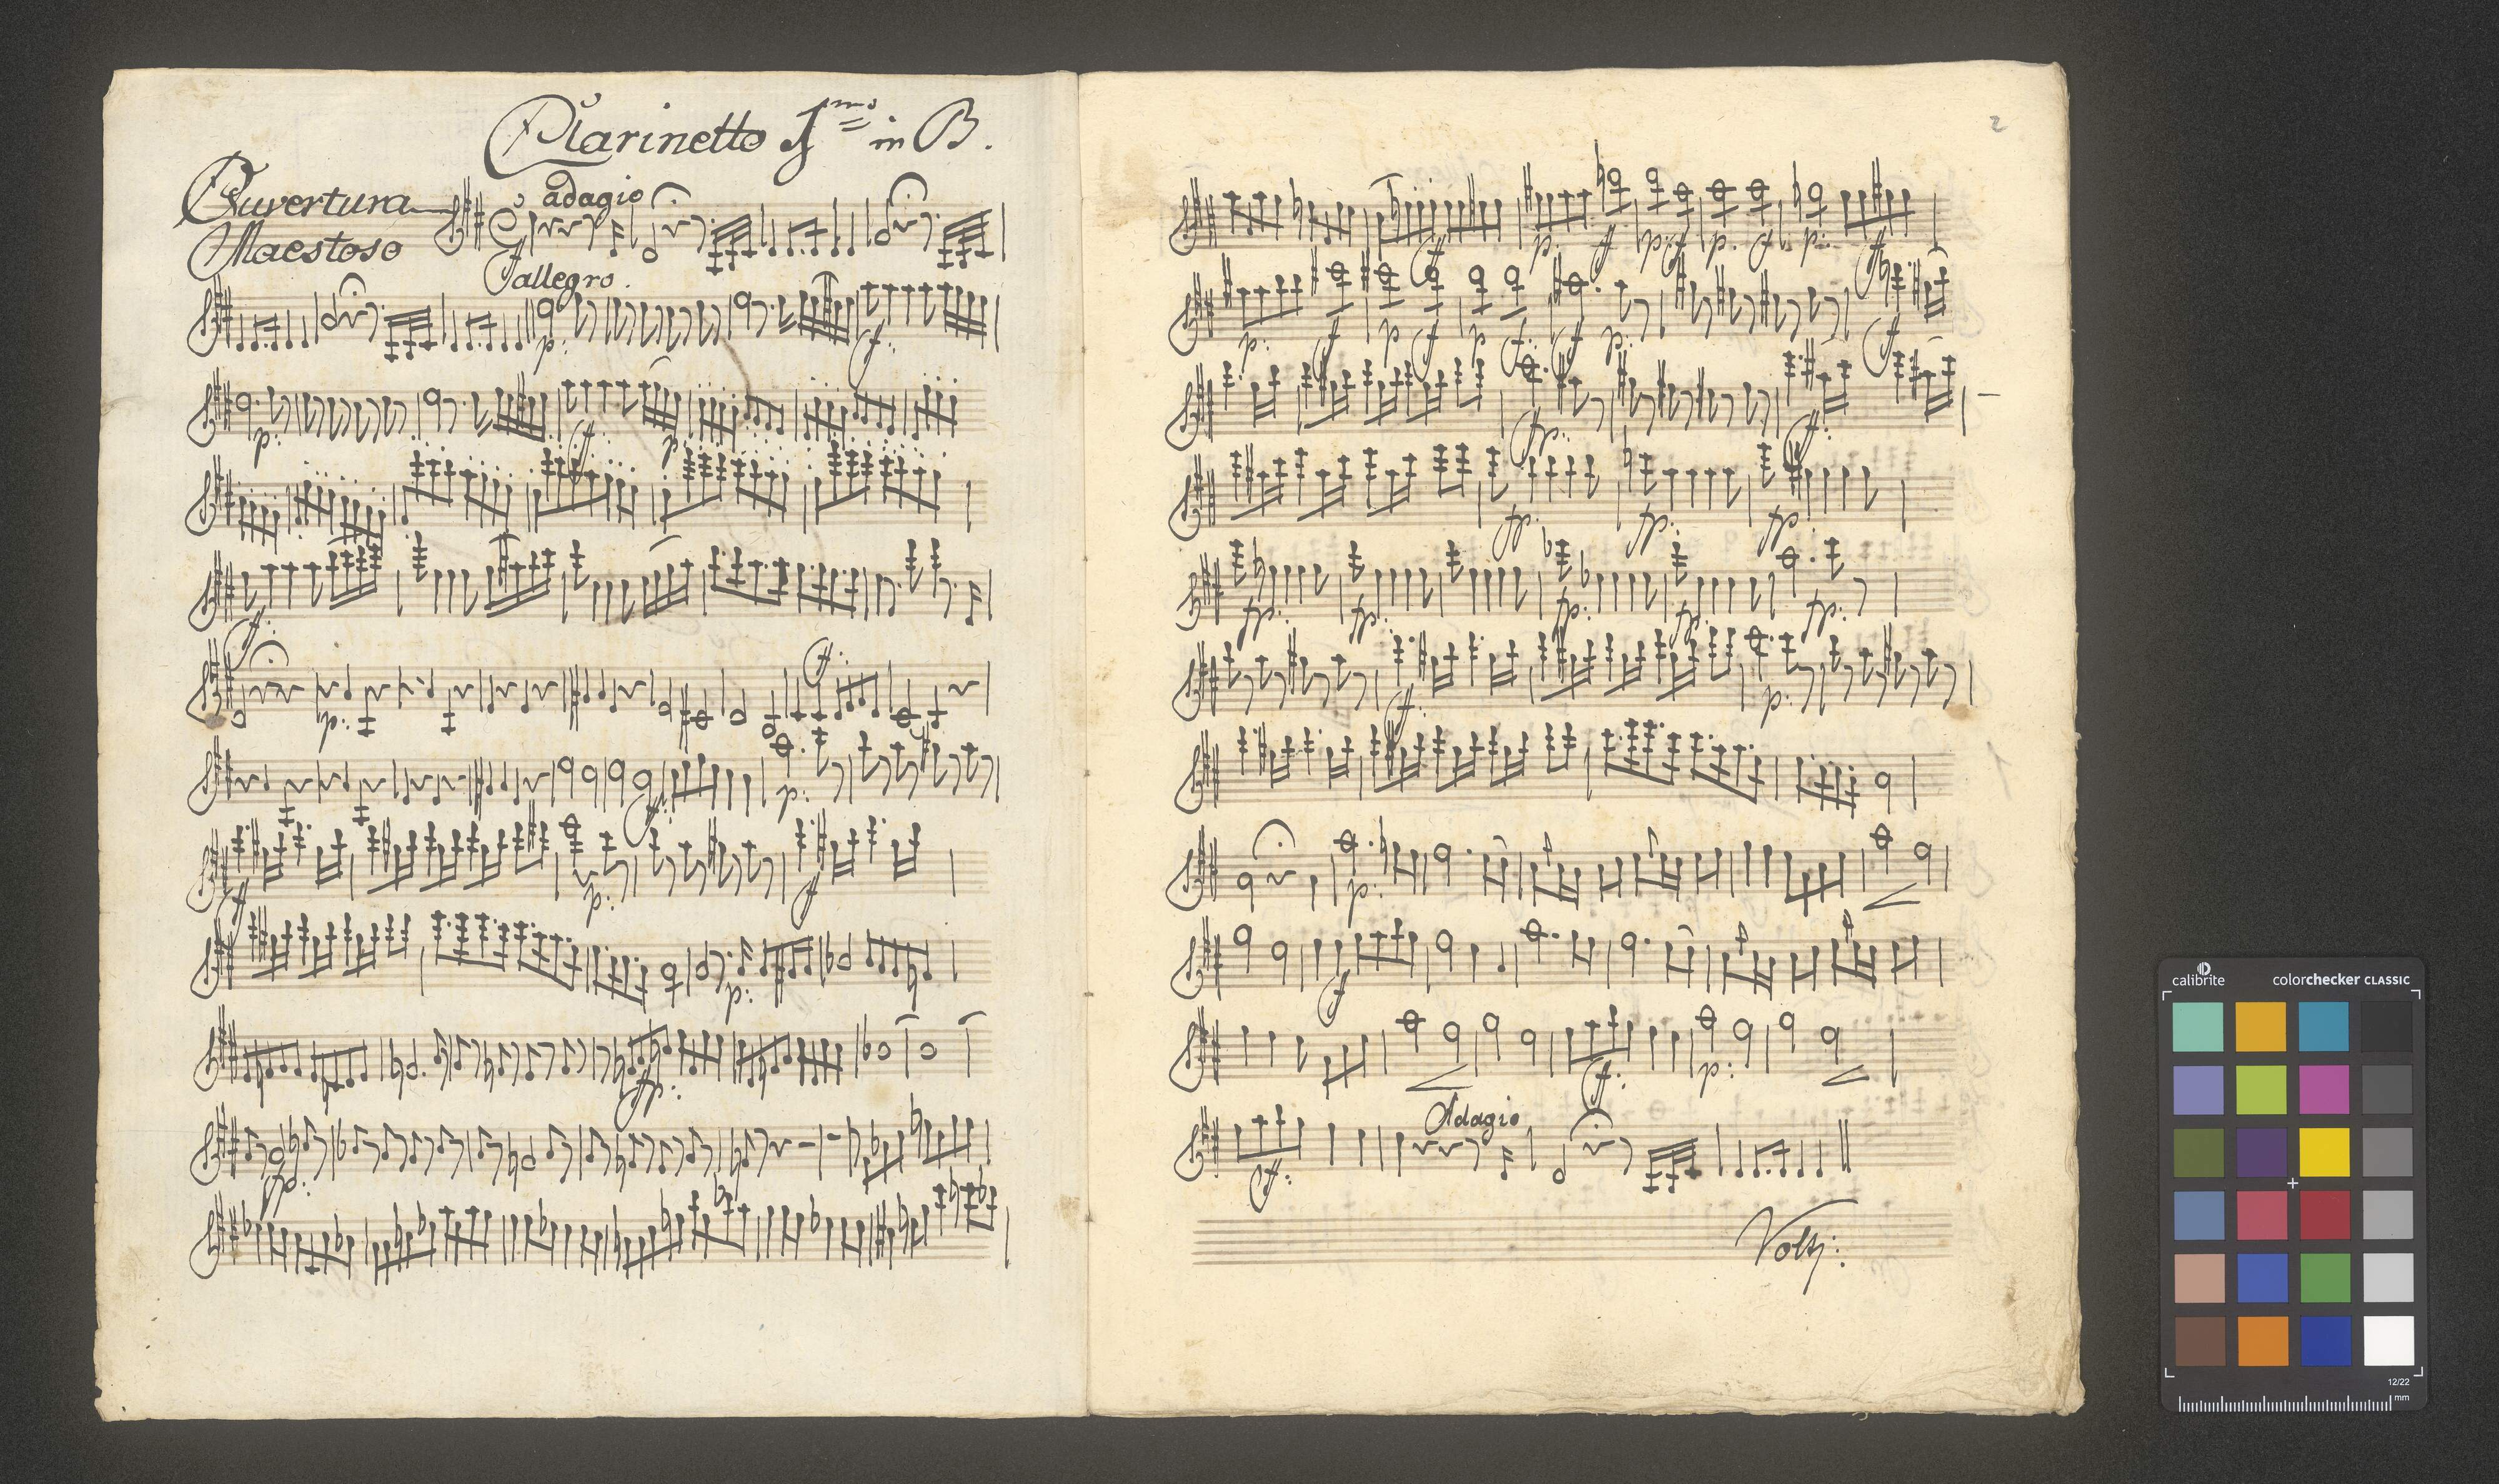 Clarinetto Imo in B.
Ouvertura
Maestoso
adagio
f allegro.
p: f:
p: f: p:
f:
p: f:
f: p:
f p: f
f p:
fp:
fp:
2
p: f p: f p. f p: f
p: f p f p f: f p: f
fp: f:
fp: fp: fp
fp: fp: fp: fp: fp:
f: p:
p:
f
f: p:
Adagio
f:
Volti:
calibrite colorchecker CLASSIC
12/22
mm